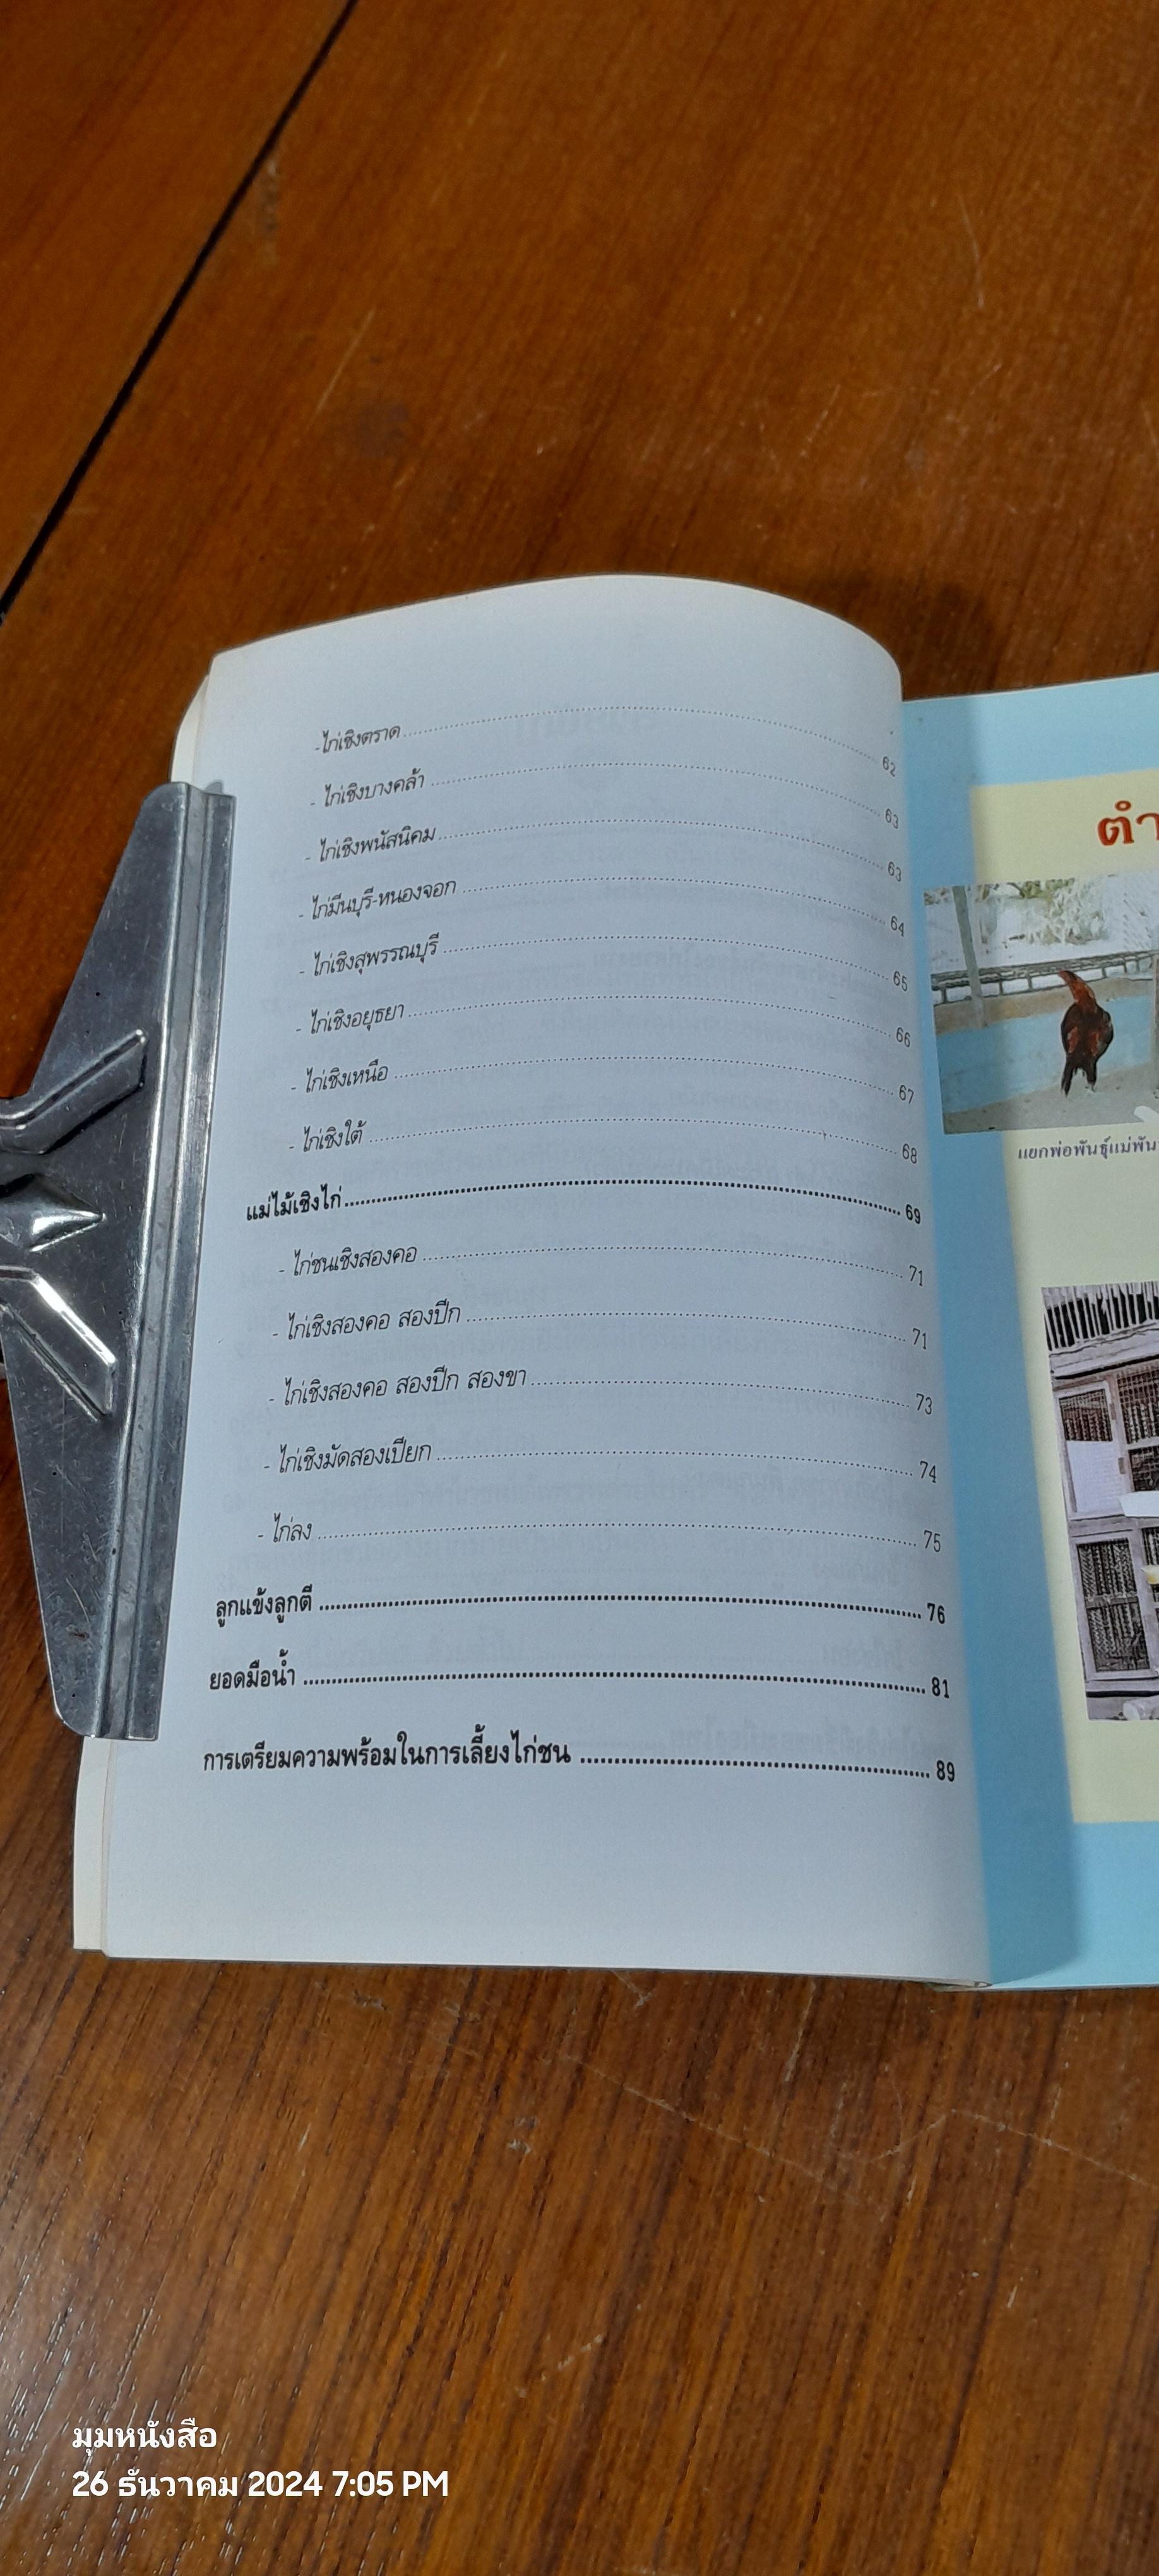 -ไก่เชิงตราด ........ 62
- ไก่เชิงบางคล้า ........ 63
- ไก่เชิงพนัสนิคม ........ 63
- ไก่มีนบุรี-หนองจอก ........ 64
- ไก่เชิงสุพรรณบุรี ........ 65
- ไก่เชิงอยุธยา ........ 66
- ไก่เชิงเหนือ ........ 67
- ไก่เชิงใต้ ........ 68
แม่ไม้เชิงไก่ ........ 69
- ไก่ชนเชิงสองคอ ........ 71
- ไก่เชิงสองคอ สองปีก ........ 71
- ไก่เชิงสองคอ สองปีก สองขา ........ 73
- ไก่เชิงมัดสองเปียก ........ 74
- ไก่ลง ........ 75
ลูกแข้งลูกตี ........ 76
ยอดมือน้ำ ........ 81
การเตรียมความพร้อมในการเลี้ยงไก่ชน ........ 89
ตำ
แยกพ่อพันธุ์แม่พัน
มุมหนังสือ
26 ธันวาคม 2024 7:05 PM